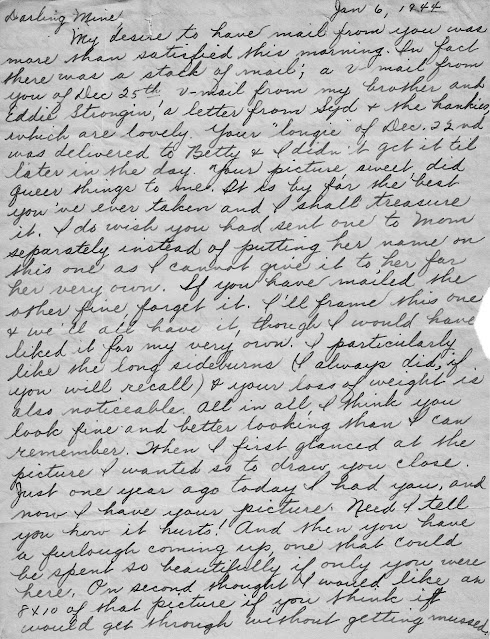 Jan 6, 1944
Darling Mine
My desire to have mail from you was
more than satisfied this morning. In fact
there was a stack of mail; a v mail from
you of Dec 25th, v-mail from my brother and
Eddie Strongin, a letter from Syd & the hankies,
which are lovely. Your "longie" of Dec. 22nd
was delivered to Betty & I didn't get it til
later in the day. Your picture, sweet, did
queer things to me. It is by far the best
you've ever taken and I shall treasure
it. I do wish you had sent one to Mom
separately instead of putting her name on
this one as I cannot give it to her for
her very own. If you have mailed the
other fine, forget it. I'll frame this one
& we'll all have it, though I would have
liked it for my very own. I particularly
like the long sideburns (I always did, if
you will recall) & your loss of weight is
also noticeable. All in all, I think you
look fine and better looking than I can
remember. When I first glanced at the
picture I wanted so to draw you close.
Just one year ago today I had you, and
now I have your picture. Need I tell
you how it hurts! And then you have
a furlough coming up, one that could
be spent so beautifully if only you were
here. On second thought I would like an
8x10 of that picture if you think it
would get through without getting mussed